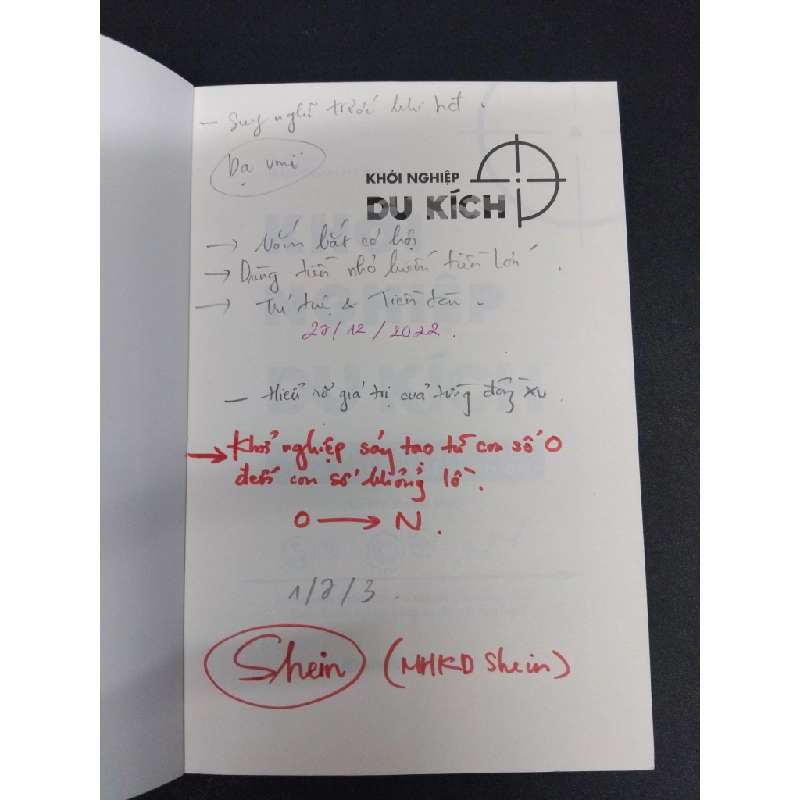 - Suy nghĩ trước khi hết.
KHỞI NGHIỆP
DU KÍCH
→ Nắm bắt cơ hội
→ Dùng tiền nhỏ kiếm tiền lớn.
→ Trí tuệ & Tiền đâu.
27/12/2022.
- Hiểu rõ giá trị của từng đồng xu.
→ Khởi nghiệp sáng tạo từ con số 0
đến con số khổng lồ.
0 → N.
1/7/3.
Shein (MHKD Shein)